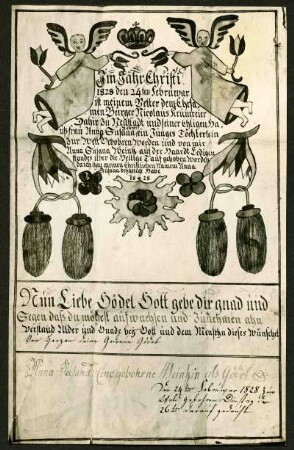 Im Jahr Christi
1828 den 24ten Februwar
ist meinem Vetter dem Ehrsa
men Bürger Nicolaus
Dahir zu Neustadt und seiner ehligen Ha
usfrau Anna Susana ein Junges Töchterlein
Zur Welt Gebohren worden und von mir
Anna Susana Weintz auf der Haardt Ledigen
standes über die Heilige Tauf gehoben worden
durch meinen ehrlichen Namen Anna
Susana beygelegt Habe
1828
Nun Liebe Gödel Gott gebe dir gnad und
Segen daß du mögest aufwachsen und Zunehmen ahn
Verstand Alder und Gnade bey Gott und dem Menschn dieses Wünschet
Von Herzen deine Getreue Gödel
Anna Susana eine gebohrne Weintzin als Gödel
Den 24ten Februwar 1828 zur
Welt gebohren Dienstag den
26ten darauf getauft